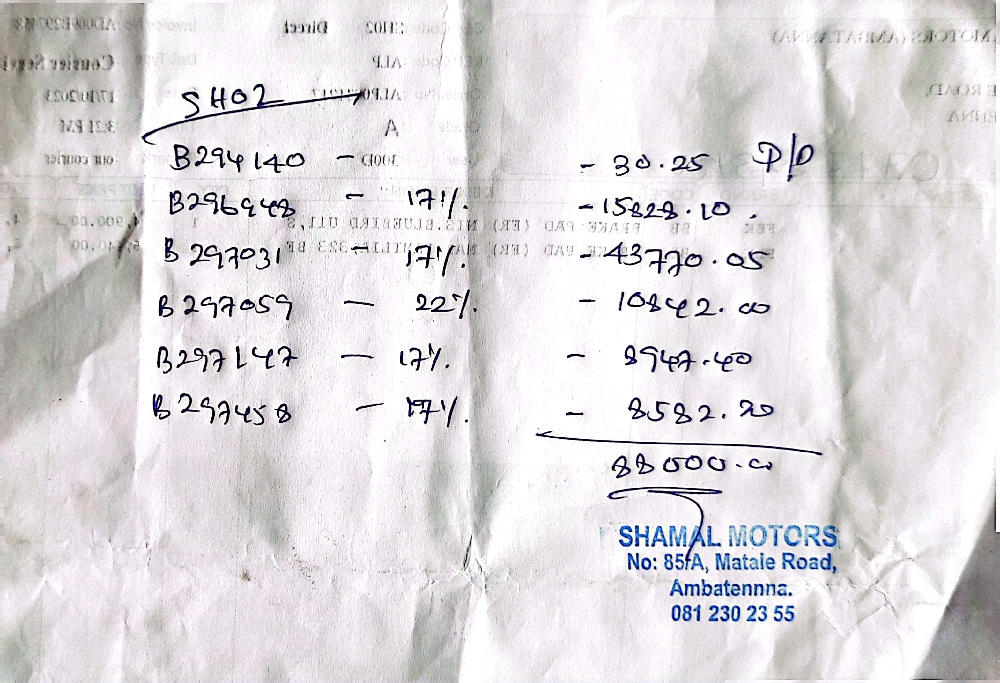 SH02
B294140 - - 30.25 P/D
B296948 - 17% - 15828.10
B297031 - 17% - 43770.05
B297059 - 22% - 10842.00
B297147 - 17% - 8947.40
B297458 - 17% - 8582.20
88000.00
SHAMAL MOTORS
No: 85/A, Matale Road,
Ambatennna.
081 230 23 55